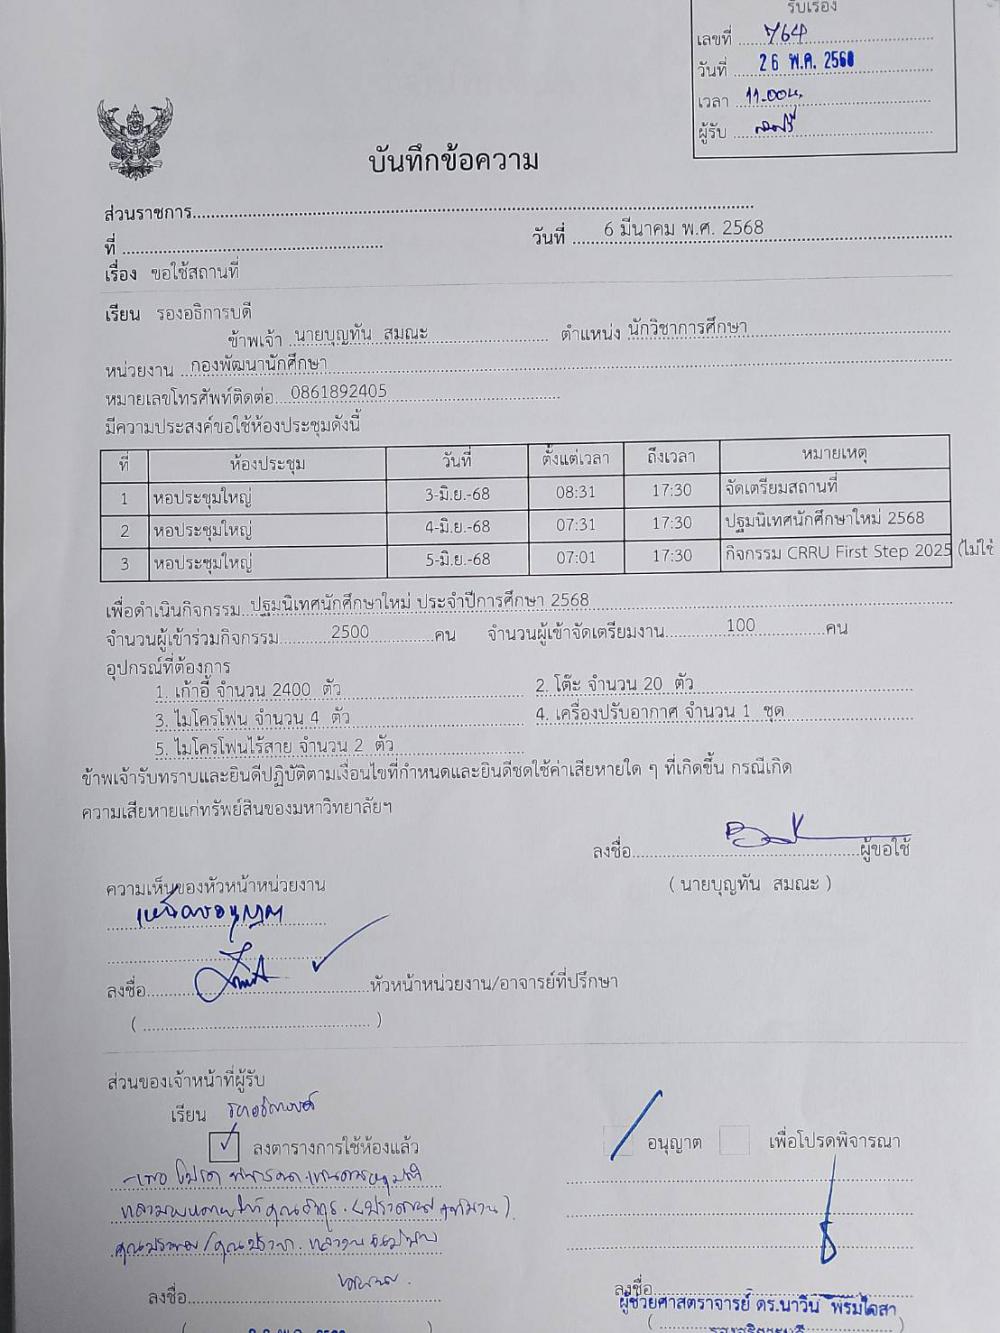 รับเรื่อง
เลขที่ 764
วันที่ 26 พ.ค. 2568
เวลา 11.00น.
ผู้รับ
บันทึกข้อความ
ส่วนราชการ
ที่ วันที่ 6 มีนาคม พ.ศ. 2568
เรื่อง ขอใช้สถานที่
เรียน รองอธิการบดี
ข้าพเจ้า นายบุญทัน สมณะ ตำแหน่ง นักวิชาการศึกษา
หน่วยงาน กองพัฒนานักศึกษา
หมายเลขโทรศัพท์ติดต่อ 0861892405
มีความประสงค์ขอใช้ห้องประชุมดังนี้
ที่ ห้องประชุม วันที่ ตั้งแต่เวลา ถึงเวลา หมายเหตุ
1 หอประชุมใหญ่ 3-มิ.ย.-68 08:31 17:30 จัดเตรียมสถานที่
2 หอประชุมใหญ่ 4-มิ.ย.-68 07:31 17:30 ปฐมนิเทศนักศึกษาใหม่ 2568
3 หอประชุมใหญ่ 5-มิ.ย.-68 07:01 17:30 กิจกรรม CRRU First Step 2025 (ไม่ใช้
เพื่อดำเนินกิจกรรม ปฐมนิเทศนักศึกษาใหม่ ประจำปีการศึกษา 2568
จำนวนผู้เข้าร่วมกิจกรรม 2500 คน จำนวนผู้เข้าจัดเตรียมงาน 100 คน
อุปกรณ์ที่ต้องการ
1. เก้าอี้ จำนวน 2400 ตัว 2. โต๊ะ จำนวน 20 ตัว
3. ไมโครโฟน จำนวน 4 ตัว 4. เครื่องปรับอากาศ จำนวน 1 ชุด
5. ไมโครโฟนไร้สาย จำนวน 2 ตัว
ข้าพเจ้ารับทราบและยินดีปฏิบัติตามเงื่อนไขที่กำหนดและยินดีชดใช้ค่าเสียหายใด ๆ ที่เกิดขึ้น กรณีเกิด
ความเสียหายแก่ทรัพย์สินของมหาวิทยาลัยฯ
ลงชื่อ ผู้ขอใช้
( นายบุญทัน สมณะ )
ความเห็นของหัวหน้าหน่วยงาน
เห็นควรอนุญาต
ลงชื่อ หัวหน้าหน่วยงาน/อาจารย์ที่ปรึกษา
( )
ส่วนของเจ้าหน้าที่ผู้รับ
เรียน รองอธิการบดี
ลงตารางการใช้ห้องแล้ว อนุญาต เพื่อโปรดพิจารณา
- เพื่อโปรดพิจารณา
ลงชื่อ ลงชื่อ
ผู้ช่วยศาสตราจารย์ ดร.นาวิน พรมใจสา
รองอธิการบดี